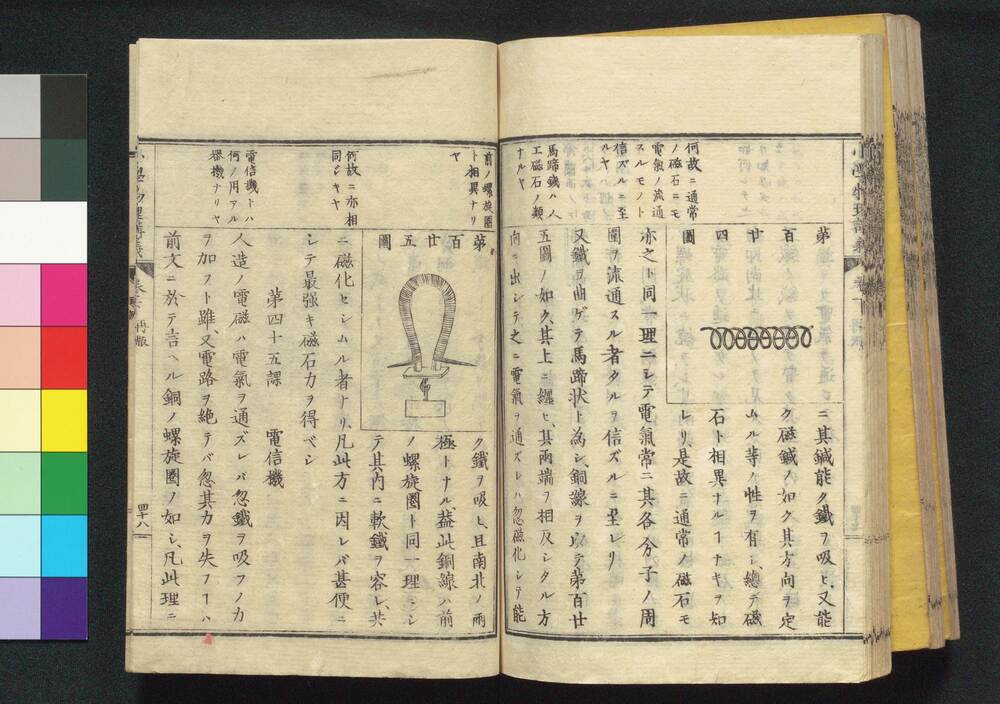 何故ニ通常
ノ磁石ニモ
電氣ノ流通
スルモノト
信ズルニ至
ルヤ
馬蹄鐵ハ人
工磁石ノ類
ナルヤ
第百廿四圖
ニ其鍼能ク鐵ヲ吸ヒ、又能
ク磁鍼ノ如ク其方向ヲ定
ムル等ノ性ヲ有シ、總テ磁
石ト相異ナルヿナキヲ知
レリ、是故ニ通常ノ磁石モ
亦之ト同一理ニシテ電氣常ニ其各分子ノ周
圍ヲ流通スル者タルヲ信ズルニ至レリ
又鐵ヲ曲ゲテ馬蹄狀ト為シ、銅線ヲ以テ第百廿
五圖ノ如ク、其上ニ纒ヒ、其兩端ヲ相反シタル方
向ニ出シテ之ニ電氣ヲ通ズレハ忽磁化シテ能
前ノ螺旋圈
ト相異ナリ
ヤ
何故ニ亦相
同ジヤ
電信機トハ
何ノ用アル
器機ナリヤ
第百廿五圖
ク鐵ヲ吸ヒ、且南北ノ兩
極トナル、蓋此銅線ハ前
ノ螺旋圈ト同一理ニシ
テ其内ニ軟鐵ヲ容レ、共
ニ磁化セシムル者ナリ、凡此方ニ因レバ甚便ニ
シテ最强キ磁石力ヲ得ベシ
第四十五課 電信機
人造ノ電磁ハ電氣ヲ通ズレバ忽鐵ヲ吸フノカ
ヲ加フト雖、又電路ヲ絶テバ忽其力ヲ失フヿハ
前文ニ於テ言ヘル銅ノ螺旋圈ノ如シ、凡此理ニ
再版
四十八